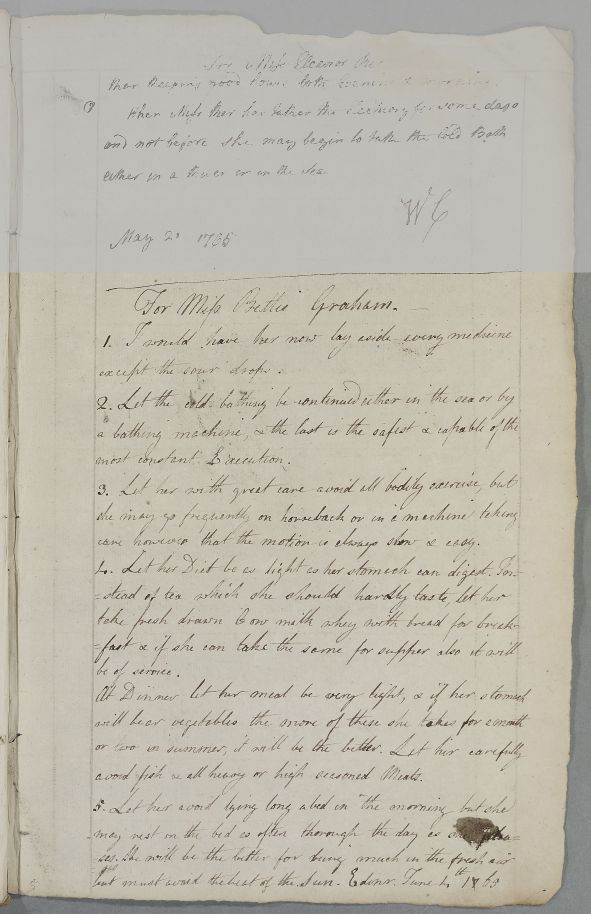 For Miss Eleanor Ker
ther keeping good hours both evening & morning.
When Miss Ker has taken the for some days
and not before she may begin to take the Cold Bath
either in a or in the Sea
WC
May 2d 1765
For Miss Bettie Graham. —
1. I would have her now lay aside every medicine
except the sour drops.
2. Let the cold bathing be continued either in the sea or by
a bathing machine, & the last is the safest & capable of the
most constant Execution.
3. Let her with great care avoid all bodily exercise, but
she may go frequently on horseback or in a machine taking
care however that the motion is always slow & easy.
4. Let her Diet be as light as her stomach can digest. In-
=stead of tea which she should hardly taste, let her
take fresh drawn Cow milk whey with bread for break-
=fast & if she can take the same for supper also it will
be of service.
At Dinner let her meal be very light, & if her stomach
will bear vegetables the more of these she takes for a month
or two in summer, it will be the better. Let her carefully
avoid fish & all heavy or high seasoned Meats.
5. Let her avoid lying long abed in the morning but she
may rest on the bed as often thorough the day as she plea=
ses. She will be the better for being much in the fresh air
but must avoid the heat of the Sun. Edinr. June 4th 1765